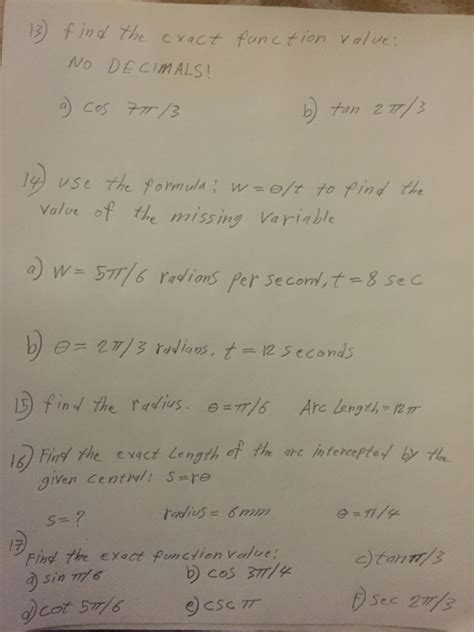 13) find the exact function value:
NO DECIMALS!
a) cos 7π/3 b) tan 2π/3
14) use the formula: w = θ/t to find the
value of the missing variable
a) w = 5π/6 radians per second, t = 8 sec
b) θ = 2π/3 radians, t = 12 seconds
15) find the radius. θ = π/6 Arc Length = 12π
16) Find the exact Length of the arc intercepted by the
given central: s = rθ
s = ? radius = 6mm θ = π/4
17)
Find the exact function value:
a) sin π/6 b) cos 3π/4 c) tan π/3
d) cot 5π/6 e) csc π f) sec 2π/3